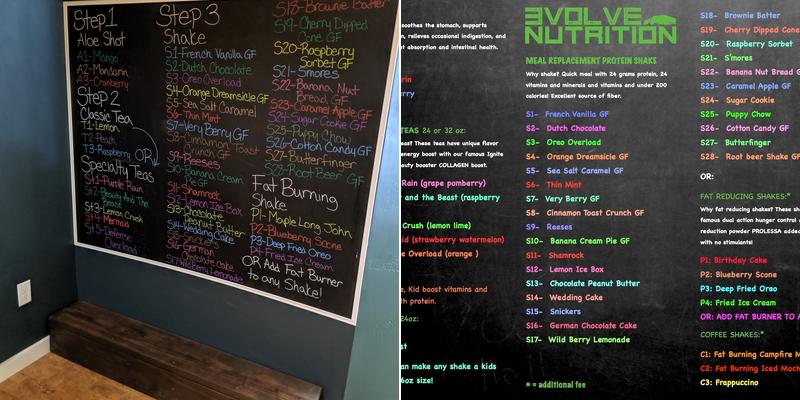 Step 1
Aloe Shot
A1-Mango
A2-Mandarin
A3-Cranberry
Step 2
Classic Tea
T1-Lemon
T2-Peach
T3-Raspberry
OR
Specialty Teas
St1-Purple Rain
St2-Beauty And The
Beast
St3-Lemon Crush
St4-Mermaid
St5-Defense
Overload
Step 3
Shake
S1-French Vanilla GF
S2-Dutch Chocolate
S3-Oreo Overload
S4-Orange Dreamsicle GF
S5-Sea Salt Caramel
S6-Thin Mint
S7-Very Berry GF
S8-Cinnamon Toast
Crunch GF
S9-Reeses
S10-Banana Cream
Pie GF
S11-Shamrock
S12-Lemon Ice Box
S13-Chocolate
Peanut Butter
S14-Wedding Cake
S15-Snickers
S16-German
Chocolate Cake
S17-Wild Berry Lemonade
S18-Brownie Batter
S19-Cherry Dipped
Cone GF
S20-Raspberry
Sorbet GF
S21-Smores
S22-Banana Nut
Bread GF
S23-Caramel Apple GF
S24-Sugar Cookie GF
S25-Puppy Chow
S26-Cotton Candy GF
S27-Butterfinger
S28-Root Beer GF
Fat Burning
Shake
P1-Maple Long John
P2-Blueberry Scone
P3-Deep Fried Oreo
P4-Fried Ice Cream
OR Add Fat Burner
to any Shake!
soothes the stomach, supports
n, relieves occasional indigestion, and
t absorption and intestinal health.
rin
rry
TEAS 24 or 32 oz:
eas? These teas have unique flavor
energy boost with our famous Ignite
auty booster COLLAGEN boost.
Rain (grape pomberry)
and the Beast (raspberry
Crush (lemon lime)
id (strawberry watermelon)
e Overload (orange )
e, Kid boost vitamins and
th protein.
24oz:
an make any shake a kids
6oz size!
EVOLVE
NUTRITION
MEAL REPLACEMENT PROTEIN SHAKE
Why shake? Quick meal with 24 grams protein, 24
vitamins and minerals and vitamins and under 200
calories! Excellent source of fiber.
S1- French Vanilla GF
S2- Dutch Chocolate
S3- Oreo Overload
S4- Orange Dreamsicle GF
S5- Sea Salt Caramel GF
S6- Thin Mint
S7- Very Berry GF
S8- Cinnamon Toast Crunch GF
S9- Reeses
S10- Banana Cream Pie GF
S11- Shamrock
S12- Lemon Ice Box
S13- Chocolate Peanut Butter
S14- Wedding Cake
S15- Snickers
S16- German Chocolate Cake
S17- Wild Berry Lemonade
* = additional fee
S18- Brownie Batter
S19- Cherry Dipped Cone
S20- Raspberry Sorbet
S21- S'mores
S22- Banana Nut Bread G
S23- Caramel Apple GF
S24- Sugar Cookie
S25- Puppy Chow
S26- Cotton Candy GF
S27- Butterfinger
S28- Root beer Shake GF
OR:
FAT REDUCING SHAKES:*
Why fat reducing shakes? These sha
famous dual action hunger control a
reduction powder PROLESSA added
with no stimulants!
P1: Birthday Cake
P2: Blueberry Scone
P3: Deep Fried Oreo
P4: Fried Ice Cream
OR: ADD FAT BURNER TO A
COFFEE SHAKES:*
C1: Fat Burning Campfire M
C2: Fat Burning Iced Moch
C3: Frappuccino